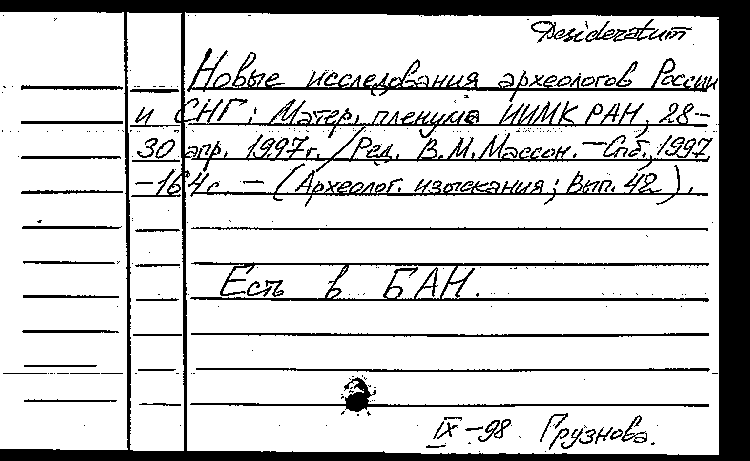 Desideratum
Новые исследования археологов России
и СНГ: Матер. пленума ИИМК РАН, 28-
30 апр. 1997г. / Ред. В.М. Массон. - Спб., 1997,
-164с. - (Археолог. изыскания; Вып. 42).
Есть в БАН.
IX-98 Грузнова.